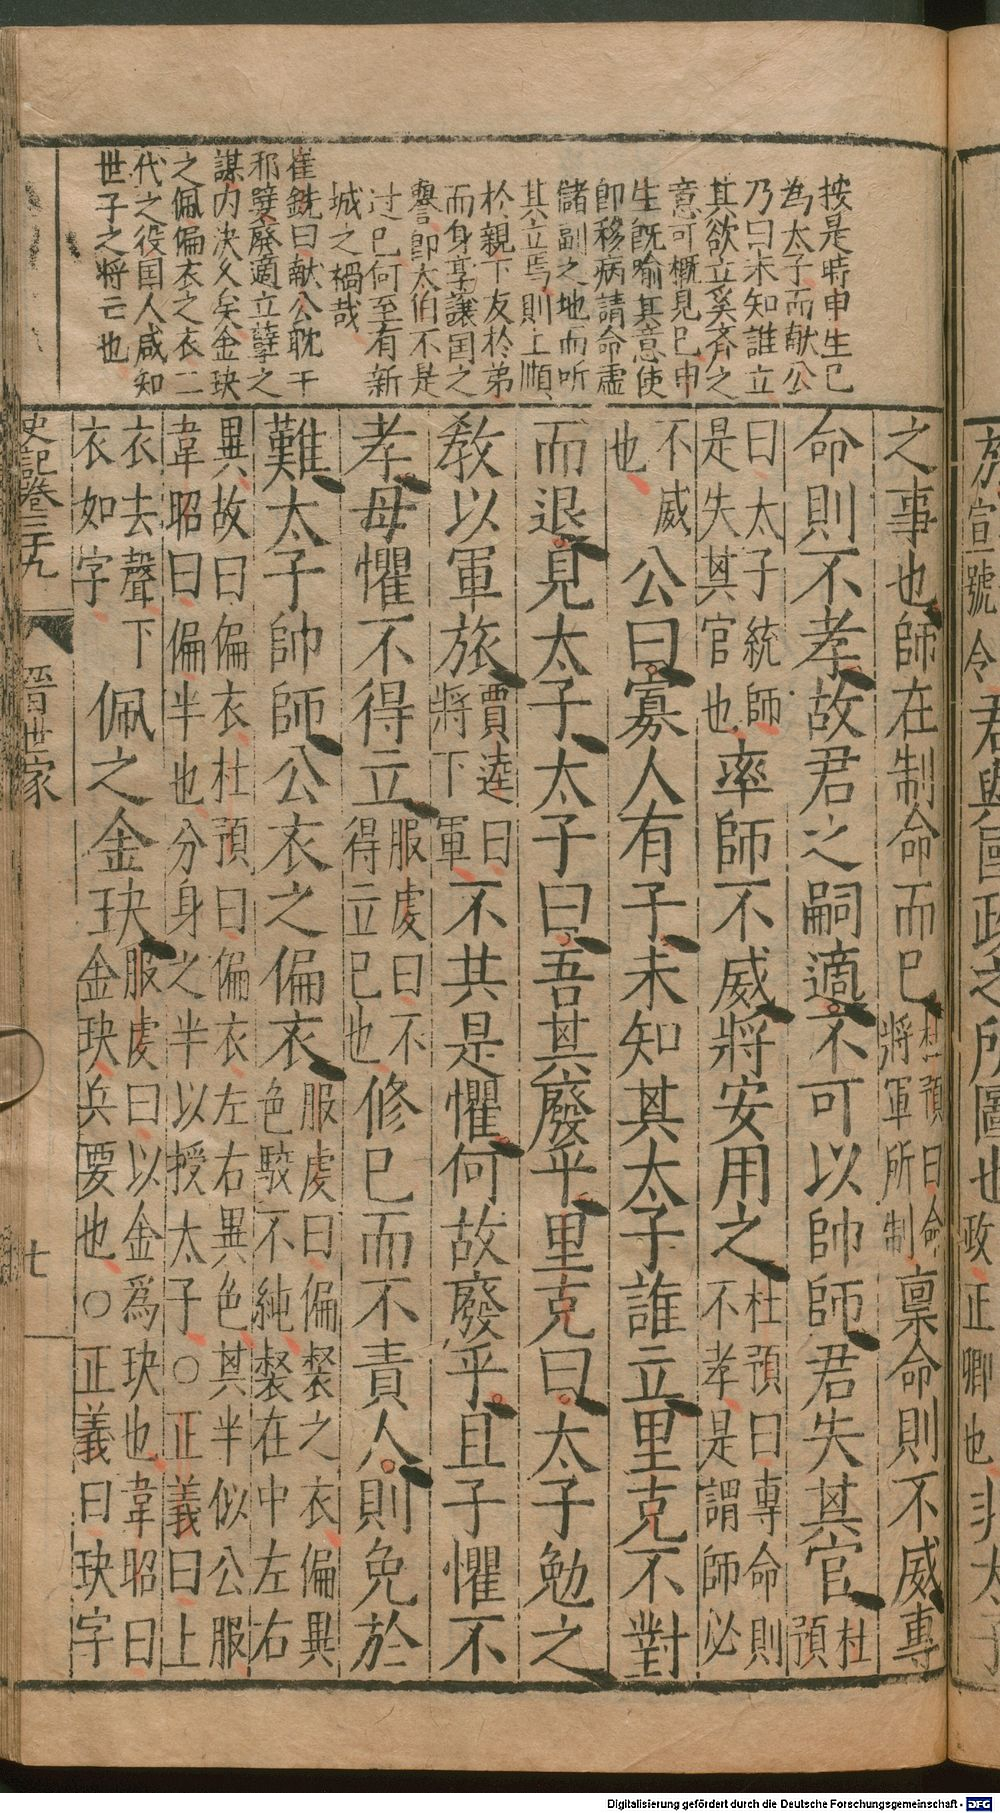 按是時申生已
為太子而献公
乃曰未知誰立
其欲立奚齊之
意可概見已申
生既喻其意使
即移病請命虚
儲副之地而听
其立焉則上順
於親下友於弟
而身享讓国之
譽即太伯不是
过已何至有新
城之禍哉
崔銑曰献公耽于
邪嬖廢適立孽之
謀内决久矣金玦
之佩偏衣之衣二
代之役国人咸知
世子之将亡也
之事也師在制命而已杜預曰命將軍所制稟命則不威專
命則不孝故君之嗣適不可以帥師君失其官杜預
曰太子統師是失其官也率師不威將安用之杜預曰專命則不孝是謂師必
不威也公曰寡人有子未知其太子誰立里克不對
而退見太子太子曰吾其廢乎里克曰太子勉之
教以軍旅賈逵曰將下軍不共是懼何故廢乎且子懼不
孝毋懼不得立服虔曰不得立己也修已而不責人則免於
難太子帥師公衣之偏衣服虔曰偏裻之衣偏異色駮不純裻在中左右
異故曰偏衣杜預曰偏衣左右異色其半似公服韋昭曰偏半也分身之半以授太子○正義曰上
衣去聲下衣如字佩之金玦服虔曰以金爲玦也韋昭曰金玦兵要也○正義曰玦字
史記卷三十九
晉世家
七
於宣號令君與國政之所圖也政正卿也非太子
Digitalisierung gefördert durch die Deutsche Forschungsgemeinschaft - DFG